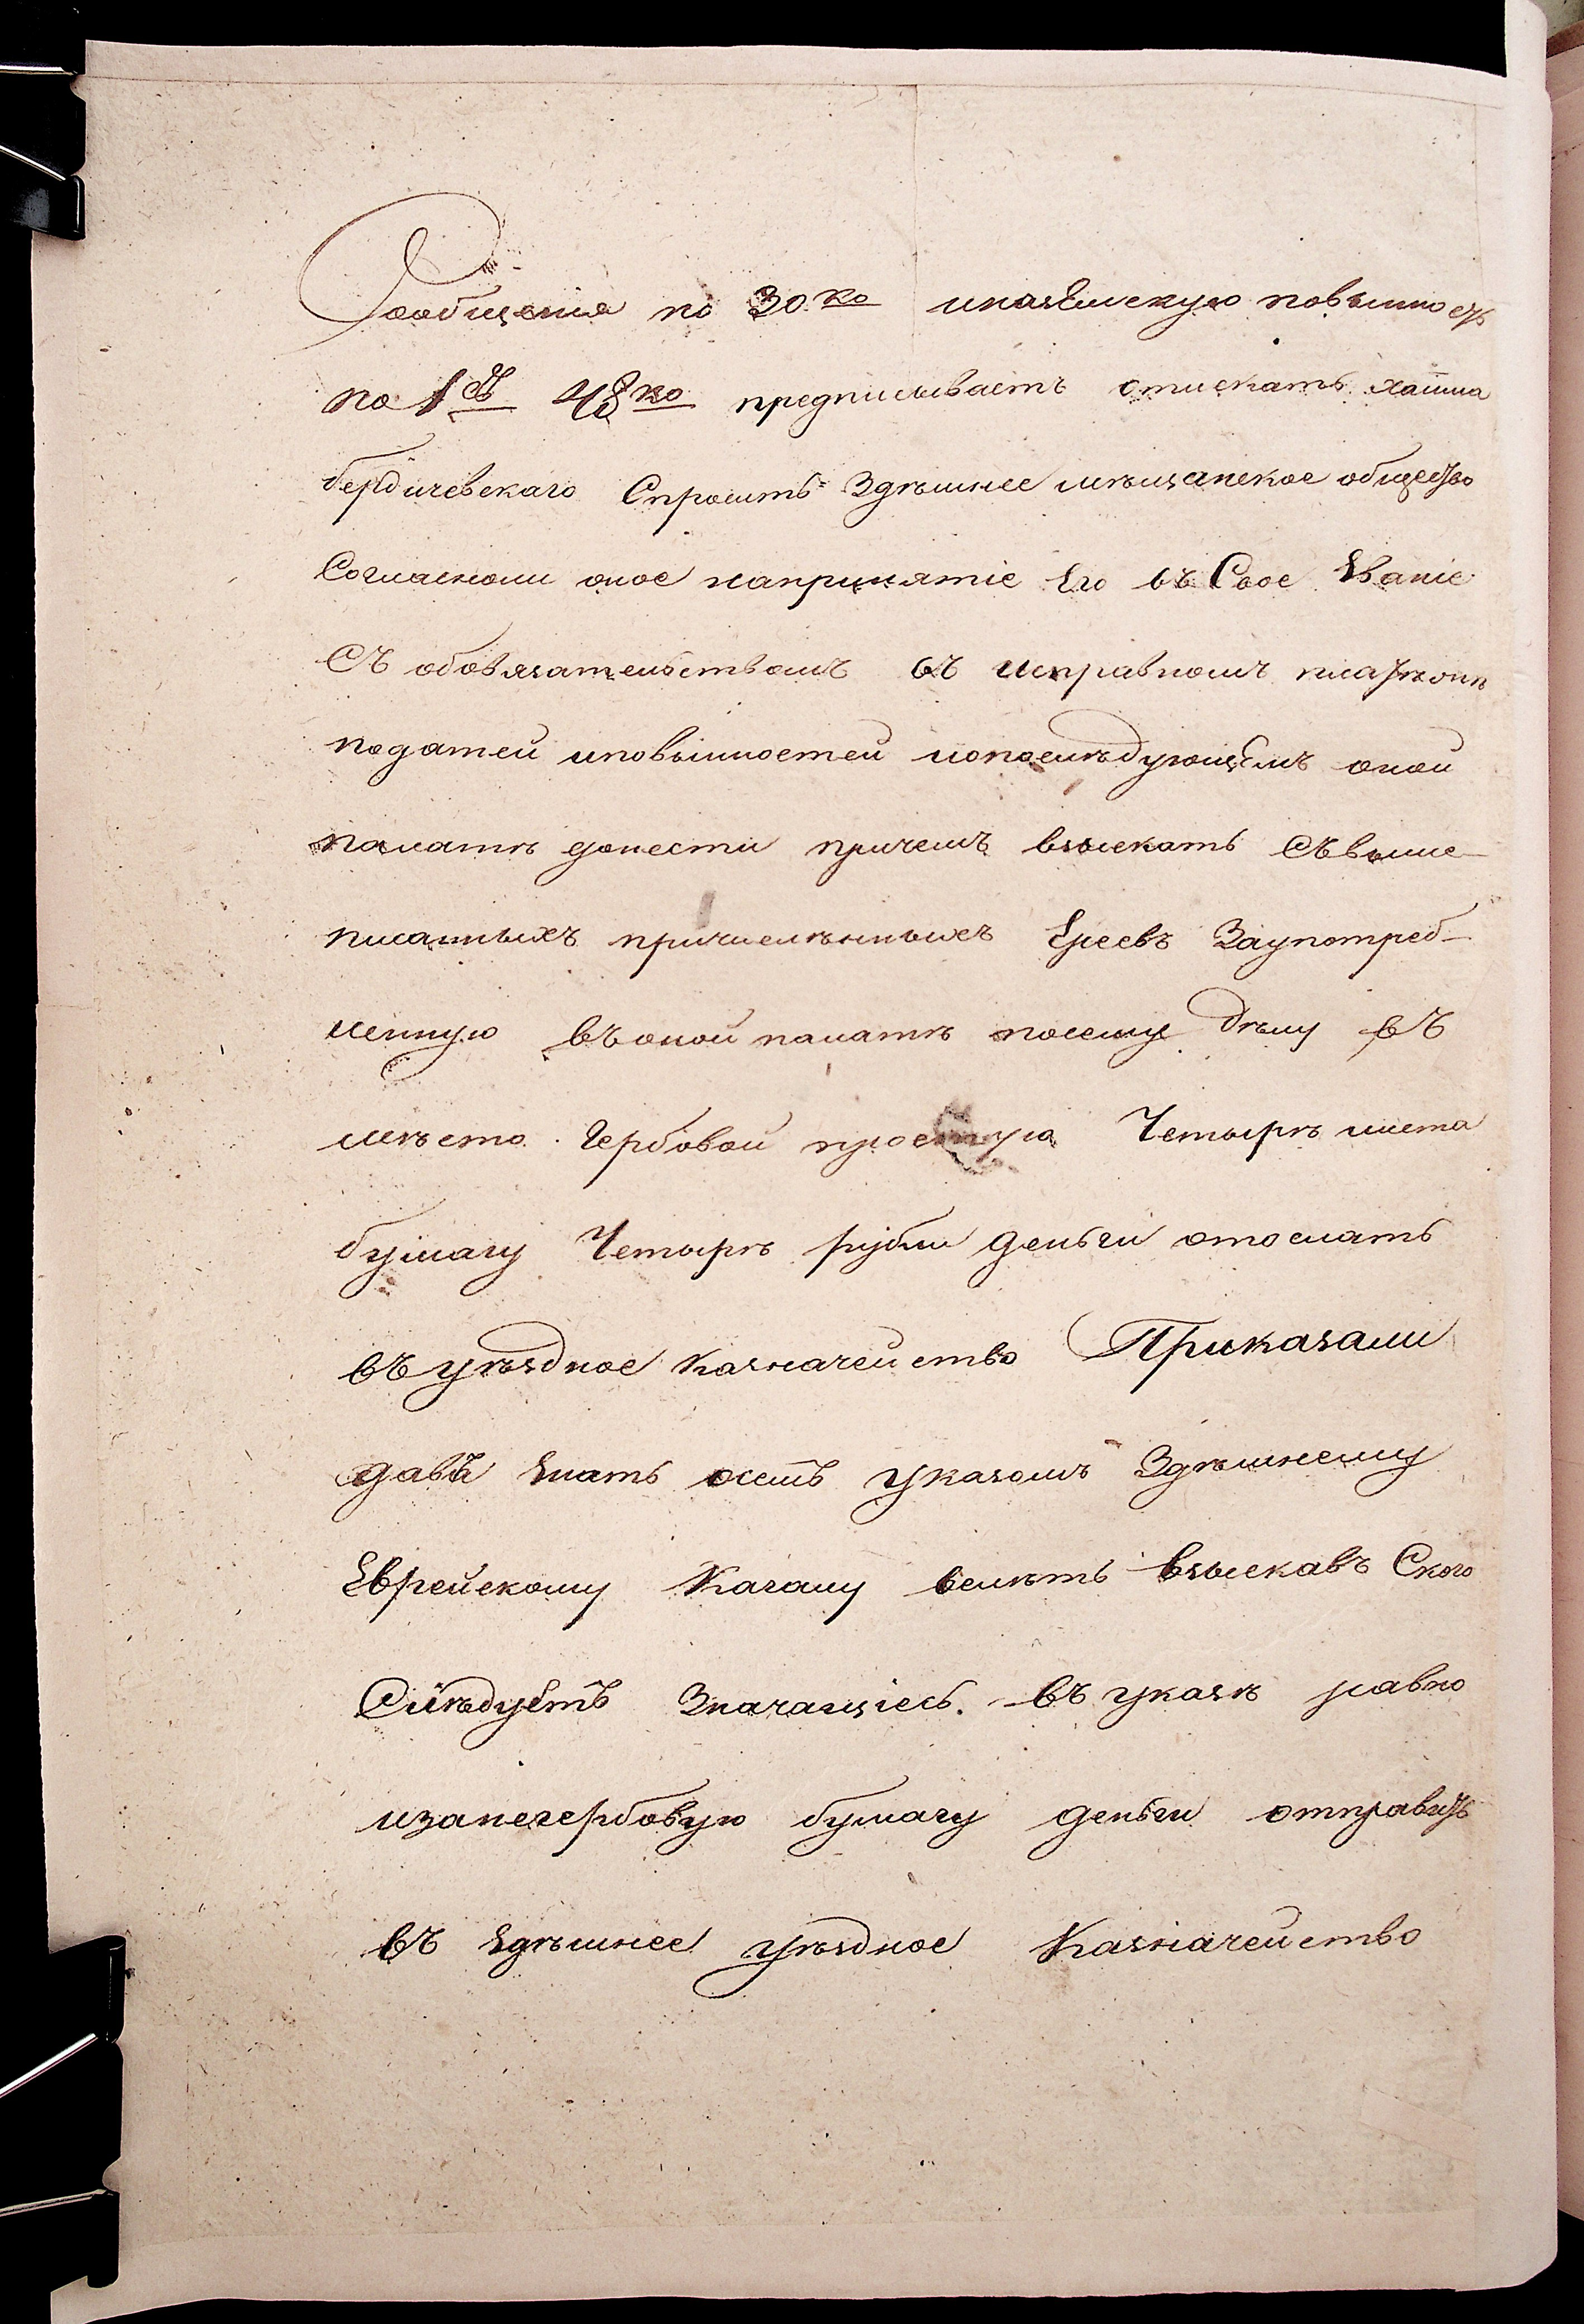 Сообщенія по 30 ко изаземскую повинность
по 1 48 ко предписываетъ отискать хаима
бердичевскаго Спросить здѣшнее мѣщанское общество
Согласноли оное напринятіе Его въ Свое Званіе
Съ обовязательствомъ въ исправномъ платѣжѣ
податей иповинностей ипослѣдующемъ оной
палатѣ донести причемъ взыскать Свыше-
писанныхъ причисленныхъ Евреевъ Заупотреб-
ленную въоной палатѣ посему дѣлу въ
мѣсто гербовой простую Четырѣ листа
бумагу Четырѣ рубли деньги отослать
въуѣздное казначейство Приказали
давъ знать осемъ указомъ Здѣшнему
Еврейскому Кагалу велѣть взыскавъ Ского
Слѣдуетъ Значащіесь въ указѣ равно
изанегербовую бумагу деньги отправить
въ здѣшнее уѣздное Казначейство